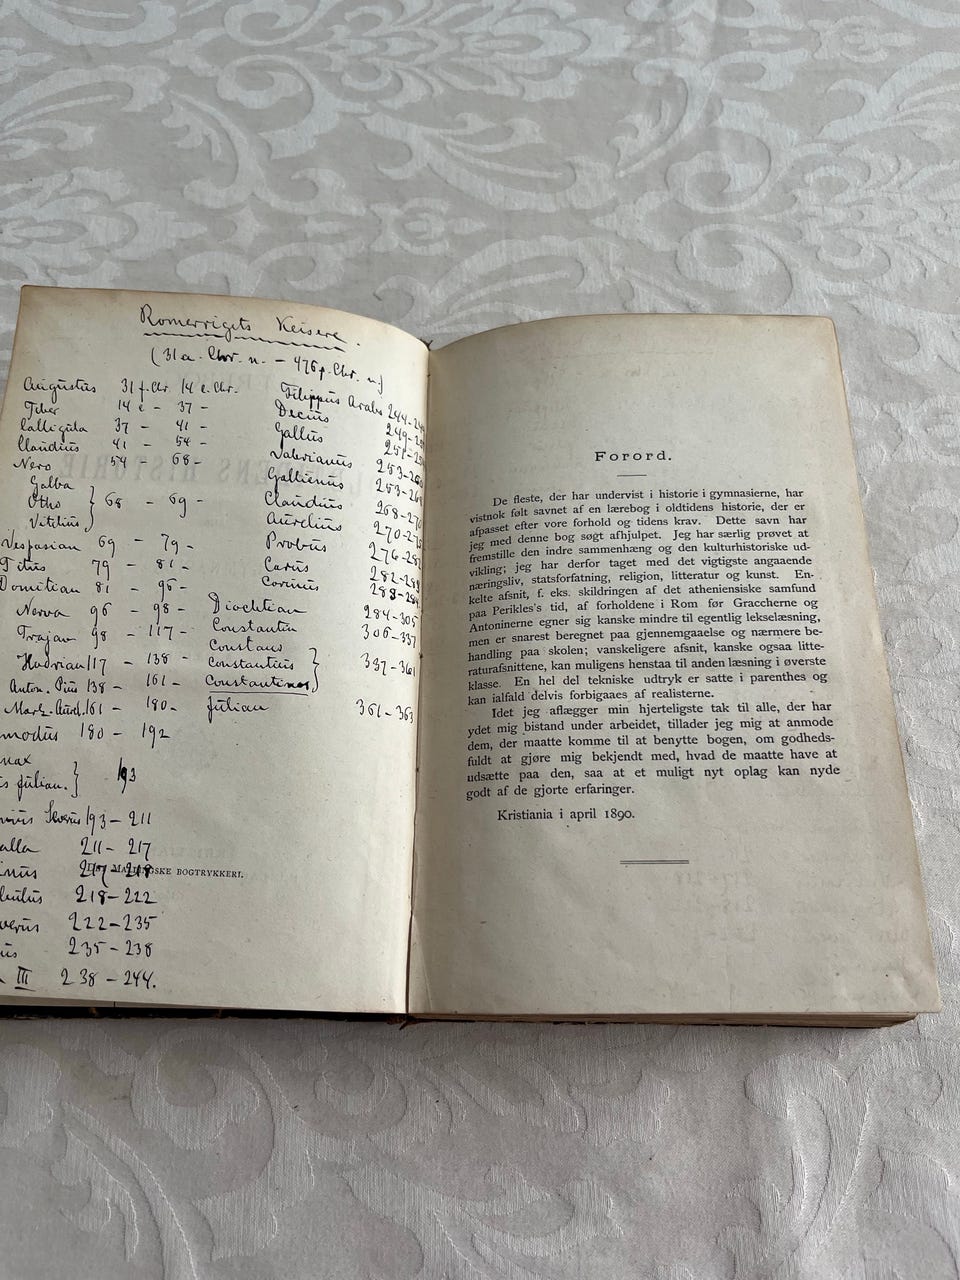 Romerrigets Keisere.
(31 a. Chr. n. - 476 p. Chr. n.)
Augustus 31 f. Chr. 14 e. Chr.
Tiber 14 e - 37 -
Calligula 37 - 41 -
Claudius 41 - 54 -
Nero 54 - 68 -
Galba
Otho } 68 - 69 -
Vitelius
Vespasian 69 - 79 -
Titus 79 - 81 -
Domitian 81 - 96 -
Nerva 96 - 98 -
Trajan 98 - 117 -
Hadrian 117 - 138 -
Anton. Pius 138 - 161 -
Mark-Aurel. 161 - 180 -
modus 180 - 192
nax
s Julian. } 193
Severus 193 - 211
alla 211 - 217
inus 217 - 218
218 - 222
verus 222 - 235
us 235 - 238
III 238 - 244.
Filippus Arabs 244-24
Decius 249-25
Gallus 251-25
Valerianus 253-260
Gallienus 253-268
Claudius 268-270
Aurelius 270-275
Probus 276-282
Carus 282-28
Carinus 283-28
Diocletian 284-305
Constantin 306-337
Constans
Constantius } 337-361
Constantinus
Julian 361-363
DET MALLINGSKE BOGTRYKKERI.
Forord.
De fleste, der har undervist i historie i gymnasierne, har
vistnok følt savnet af en lærebog i oldtidens historie, der er
afpasset efter vore forhold og tidens krav. Dette savn har
jeg med denne bog søgt afhjulpet. Jeg har særlig prøvet at
fremstille den indre sammenhæng og den kulturhistoriske ud-
vikling; jeg har derfor taget med det vigtigste angaaende
næringsliv, statsforfatning, religion, litteratur og kunst. En-
kelte afsnit, f. eks. skildringen af det atheniensiske samfund
paa Perikles's tid, af forholdene i Rom før Graccherne og
Antoninerne egner sig kanske mindre til egentlig lekselæsning,
men er snarest beregnet paa gjennemgaaelse og nærmere be-
handling paa skolen; vanskeligere afsnit, kanske ogsaa litte-
raturafsnittene, kan muligens henstaa til anden læsning i øverste
klasse. En hel del tekniske udtryk er satte i parenthes og
kan ialfald delvis forbigaaes af realisterne.
Idet jeg aflægger min hjerteligste tak til alle, der har
ydet mig bistand under arbeidet, tillader jeg mig at anmode
dem, der maatte komme til at benytte bogen, om godheds-
fuldt at gjøre mig bekjendt med, hvad de maatte have at
udsætte paa den, saa at et muligt nyt oplag kan nyde
godt af de gjorte erfaringer.
Kristiania i april 1890.